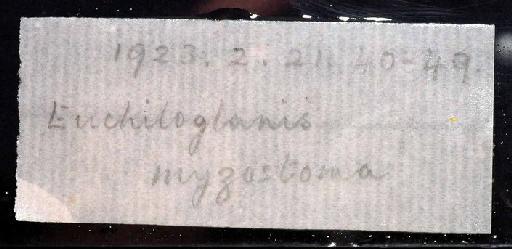 1923. 2. 21. 40-49.
Euchiloglanis
myzostoma